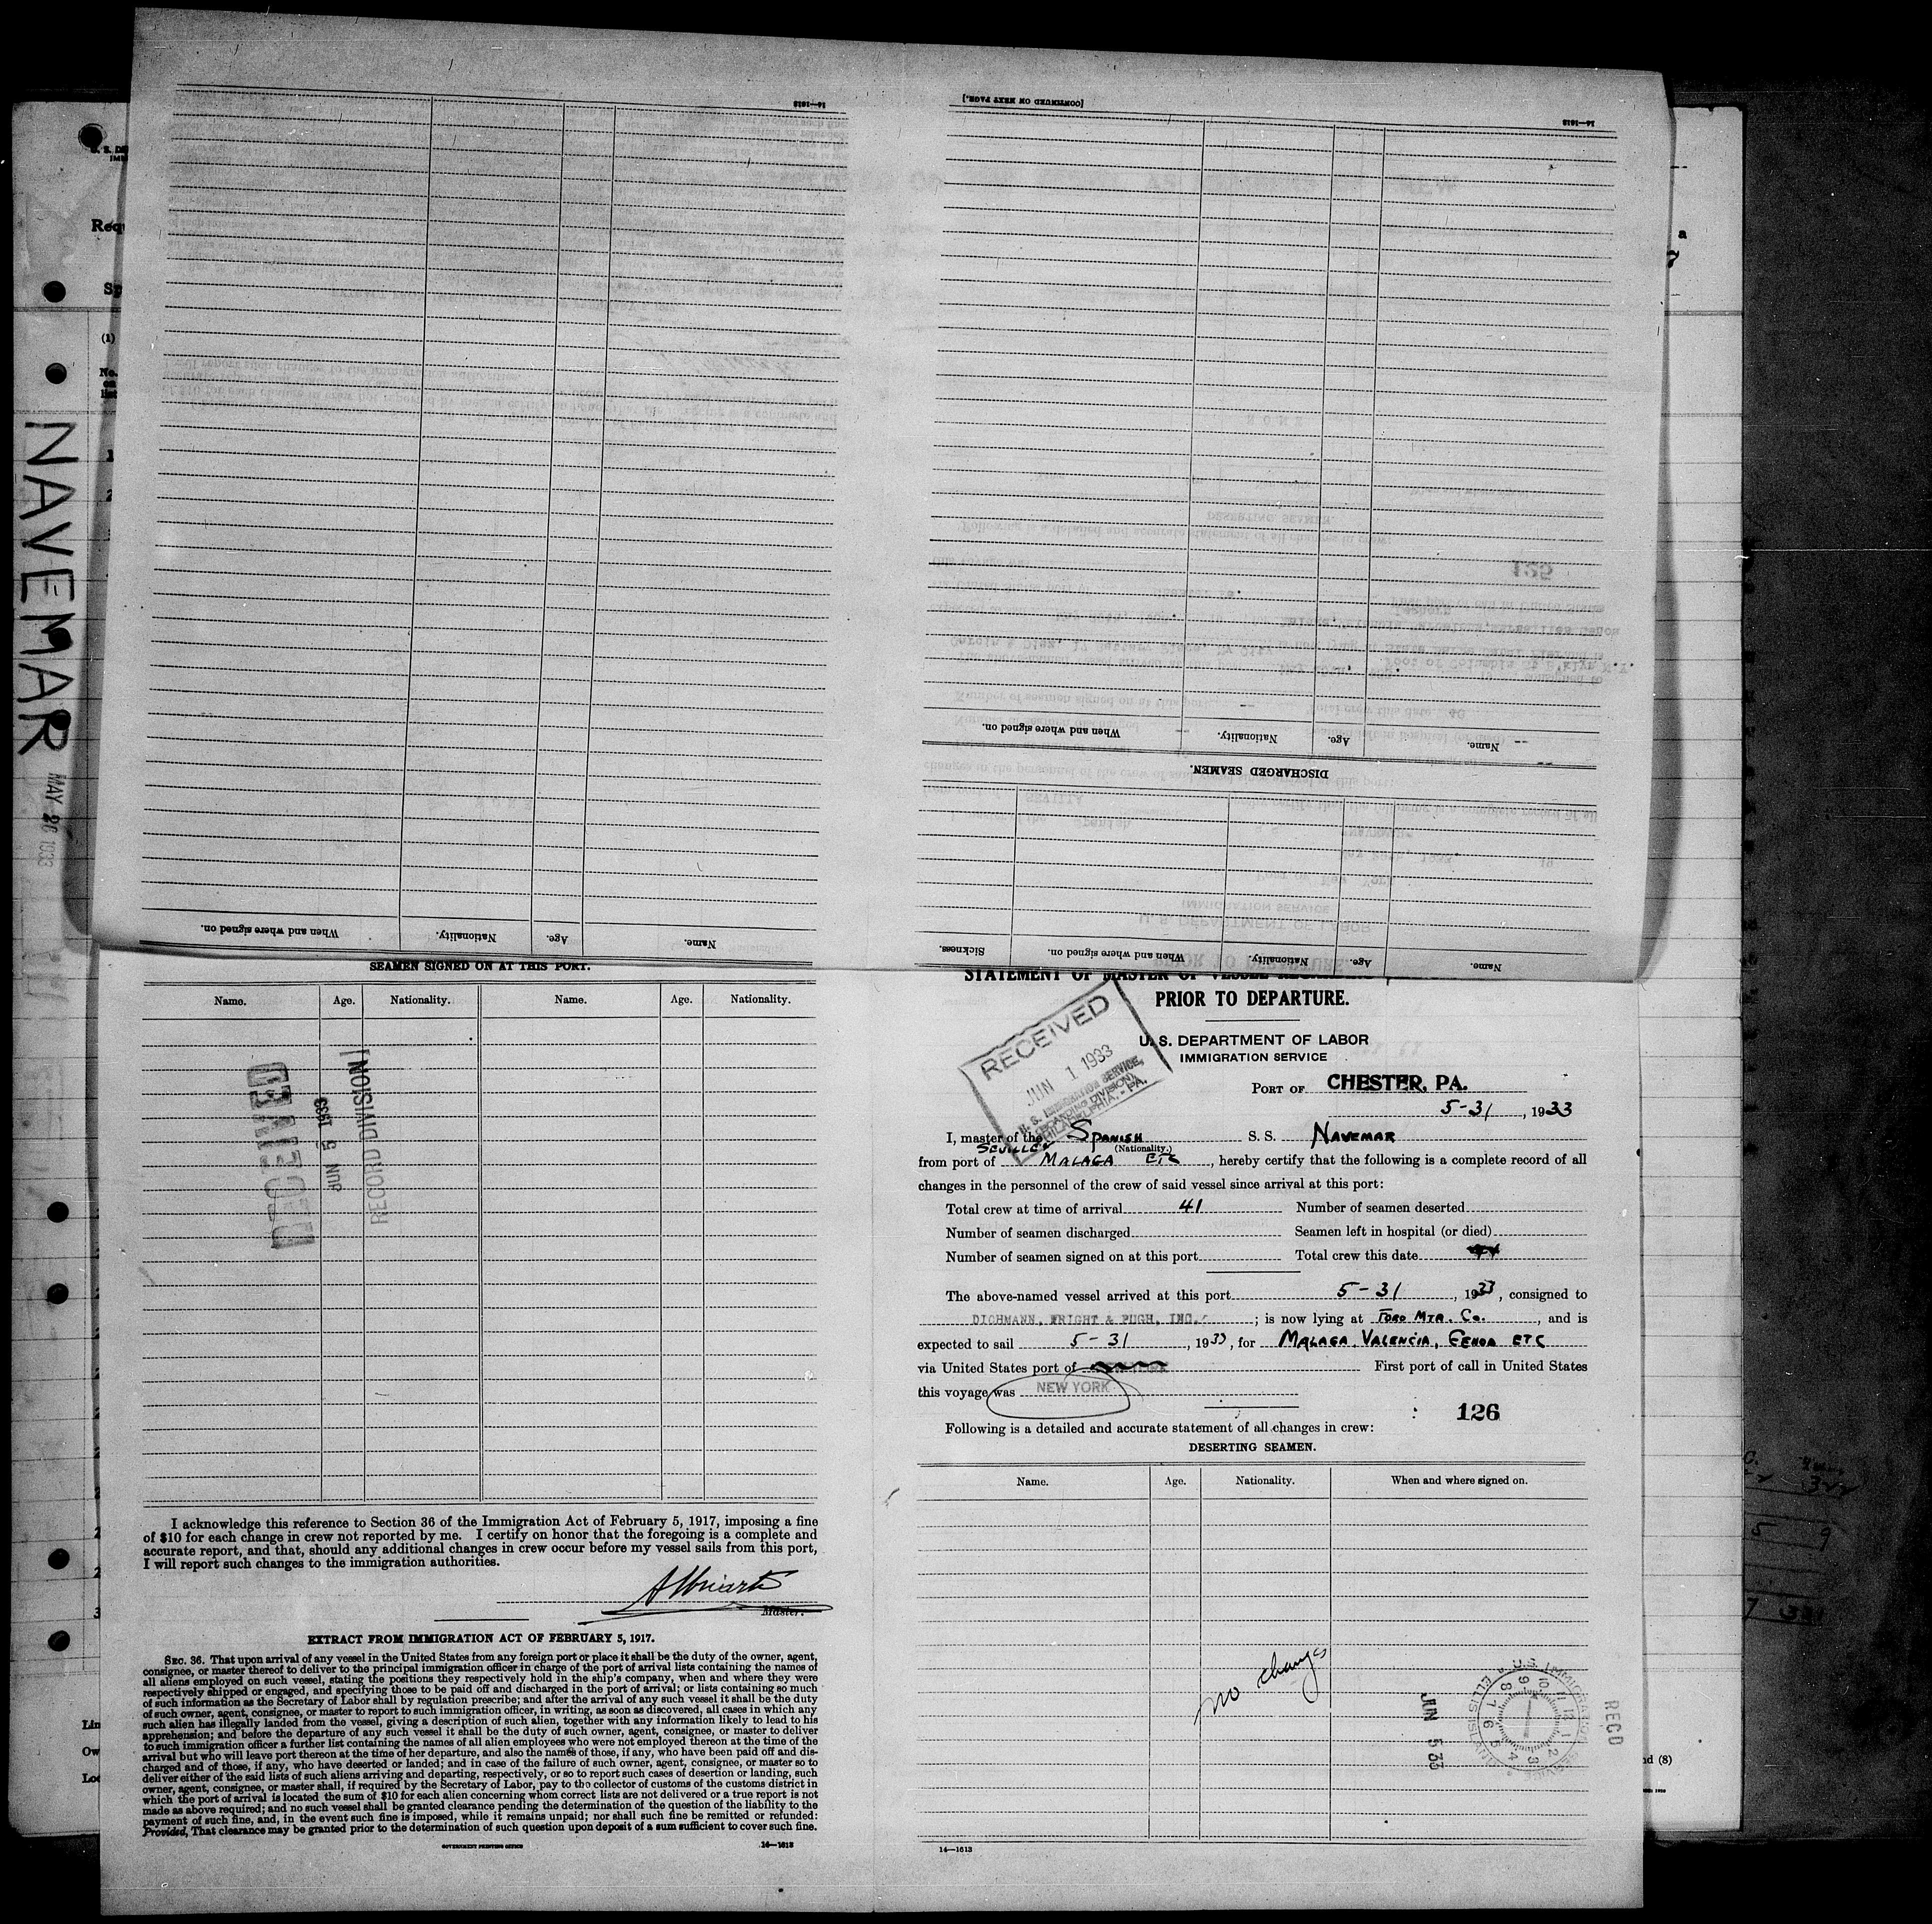 NAVEMAR
MAY 26 1933
[CONTINUED ON NEXT PAGE.]
14—1613
14—1613
Name. Age. Nationality. When and where signed on.
DISCHARGED SEAMEN.
Name. Age. Nationality. When and where signed on. Sickness.
Name. Age. Nationality. When and where signed on.
SEAMEN SIGNED ON AT THIS PORT.
Name. Age. Nationality. Name. Age. Nationality.
RECEIVED
JUN 5 1933
RECORD DIVISION
I acknowledge this reference to Section 36 of the Immigration Act of February 5, 1917, imposing a fine
of $10 for each change in crew not reported by me. I certify on honor that the foregoing is a complete and
accurate report, and that, should any additional changes in crew occur before my vessel sails from this port,
I will report such changes to the immigration authorities.
Master.
EXTRACT FROM IMMIGRATION ACT OF FEBRUARY 5, 1917.
SEC. 36. That upon arrival of any vessel in the United States from any foreign port or place it shall be the duty of the owner, agent,
consignee, or master thereof to deliver to the principal immigration officer in charge of the port of arrival lists containing the names of
all aliens employed on such vessel, stating the positions they respectively hold in the ship's company, when and where they were
respectively shipped or engaged, and specifying those to be paid off and discharged in the port of arrival; or lists containing so much
of such information as the Secretary of Labor shall by regulation prescribe; and after the arrival of any such vessel it shall be the duty
of such owner, agent, consignee, or master to report to such immigration officer, in writing, as soon as discovered, all cases in which any
such alien has illegally landed from the vessel, giving a description of such alien, together with any information likely to lead to his
apprehension; and before the departure of any such vessel it shall be the duty of such owner, agent, consignee, or master to deliver
to such immigration officer a further list containing the names of all alien employees who were not employed thereon at the time of the
arrival but who will leave port thereon at the time of her departure, and also the names of those, if any, who have been paid off and dis-
charged and of those, if any, who have deserted or landed; and in case of the failure of such owner, agent, consignee, or master so to
deliver either of the said lists of such aliens arriving and departing, respectively, or so to report such cases of desertion or landing, such
owner, agent, consignee, or master shall, if required by the Secretary of Labor, pay to the collector of customs of the customs district in
which the port of arrival is located the sum of $10 for each alien concerning whom correct lists are not delivered or a true report is not
made as above required; and no such vessel shall be granted clearance pending the determination of the question of the liability to the
payment of such fine, and, in the event such fine is imposed, while it remains unpaid; nor shall such fine be remitted or refunded:
Provided, That clearance may be granted prior to the determination of such question upon deposit of a sum sufficient to cover such fine.
GOVERNMENT PRINTING OFFICE 14—1613
STATEMENT OF MASTER OF VESSEL
PRIOR TO DEPARTURE.
U. S. DEPARTMENT OF LABOR
IMMIGRATION SERVICE
RECEIVED
JUN 1 1933
U. S. IMMIGRATION SERVICE,
(BOARDING DIVISION)
PHILADELPHIA, - PA.
PORT OF CHESTER, PA.
5-31, 1933
I, master of the SPANISH S. S. NAVEMAR
(Nationality.)
SEVILLE
from port of MALAGA ETC, hereby certify that the following is a complete record of all
changes in the personnel of the crew of said vessel since arrival at this port:
Total crew at time of arrival 41 Number of seamen deserted
Number of seamen discharged Seamen left in hospital (or died)
Number of seamen signed on at this port Total crew this date
The above-named vessel arrived at this port 5-31, 1933, consigned to
DICHMANN, WRIGHT & PUGH, INC.; is now lying at FORD MTR. CO., and is
expected to sail 5-31, 1933, for MALAGA, VALENCIA, GENOA ETC
via United States port of First port of call in United States
this voyage was NEW YORK
126
Following is a detailed and accurate statement of all changes in crew:
DESERTING SEAMEN.
Name. Age. Nationality. When and where signed on.
no changes
JUN 5 33
U.S. IMMIGRATION SERVICE ELLIS ISLAND
REC'D
14—1613